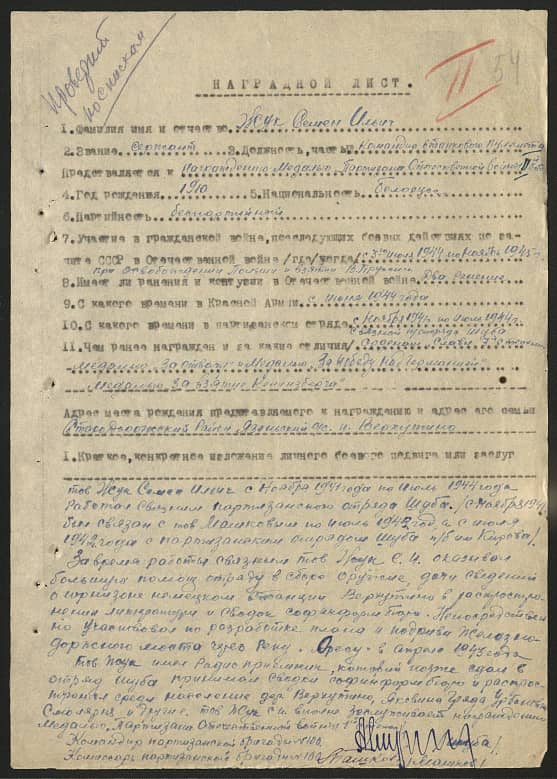 проведён
по спискам
II 54
НАГРАДНОЙ ЛИСТ.
1. Фамилия имя и отчество Жук Семен Ильич
2. Звание сержант 3. Должность, часть Командир станкового пулемета
Представляется к Награждению Медалью "Партизана Отечественной войны" II ст
4. Год рождения 1910 5. Национальность белорус
6. Партийность беспартийный
7. Участие в гражданской войне, последующих боевых действиях по за-
щите СССР в Отечественной войне /где/когда/ с июля 1944 по 1945 г.
при освобождении Польши и взятии В. Пруссии
8. Имеет ли ранения и контузии в Отечественной войне Два ранения
9. С какого времени в Красной Армии с июля 1944 года
10. С какого времени в партизанском отряде с Ноября 1941 г. по июль 1944 г.
связной отряда Шуба
11. Чем ранее награжден и за какие отличия Орденом Славы
медалью "За отвагу" и Медалью "За победу над Германией"
Медалью "За взятие Кенигсберга"
Адрес места рождения представляемого к награждению и адрес его семьи
Стародорожский район, Язышский с/с д. Верхутино
1. Краткое, конкретное изложение личного боевого подвига или заслуг
тов Жук Семен Ильич с Ноября 1941 года по Июль 1944 года
Работал связным партизанского отряда Шуба. /с Ноября 1941
был связан с тов Машковым по июль 1942 года с июля
1942 года с партизанским отрядом Шуба п/б им Кирова/.
За время работы связным тов Жук С.И. оказывал
большую помощь отряду в сборе оружие, дачи сведений
о гарнизоне немецком станции Верхутино в распростра-
нения литературы и сводок софинформбюро. Непосредствен-
но участвовал по разработке плана и подрыва Железно-
дорожного моста через Реку "Оресу" в апреле 1943 года
тов Жук имел Радио приёмник, который позже сдал в
отряд Шуба принимал сводки софинформбюро и распрос-
транял среди население дер Верхутино, Яковина Гряда
Смолярня и другие. тов Жук С.И. вполне заслуживает награждения
Медалью "Партизана Отечественной войны"
Командир партизанской бригады № 100 /Шуба/
Комиссар партизанской бригады № 100 Машков /Машков/